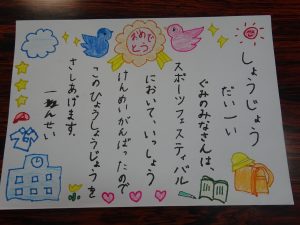 おめで
とう
しょうじょう
だい一い
ぐみのみなさんは、
スポーツフェスティバル
において、いっしょう
けんめいがんばったので
このひょうしょうじょうを
さしあげます。